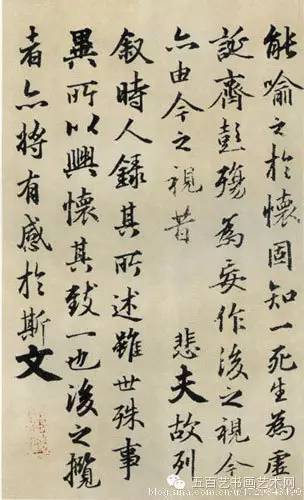 能喻之於懷固知一死生為虛
誕齊彭殤為妄作後之視今
亦由今之視昔 悲夫故列
叙時人錄其所述雖世殊事
異所以興懷其致一也後之攬
者亦將有感於斯文
五百艺书画艺术网